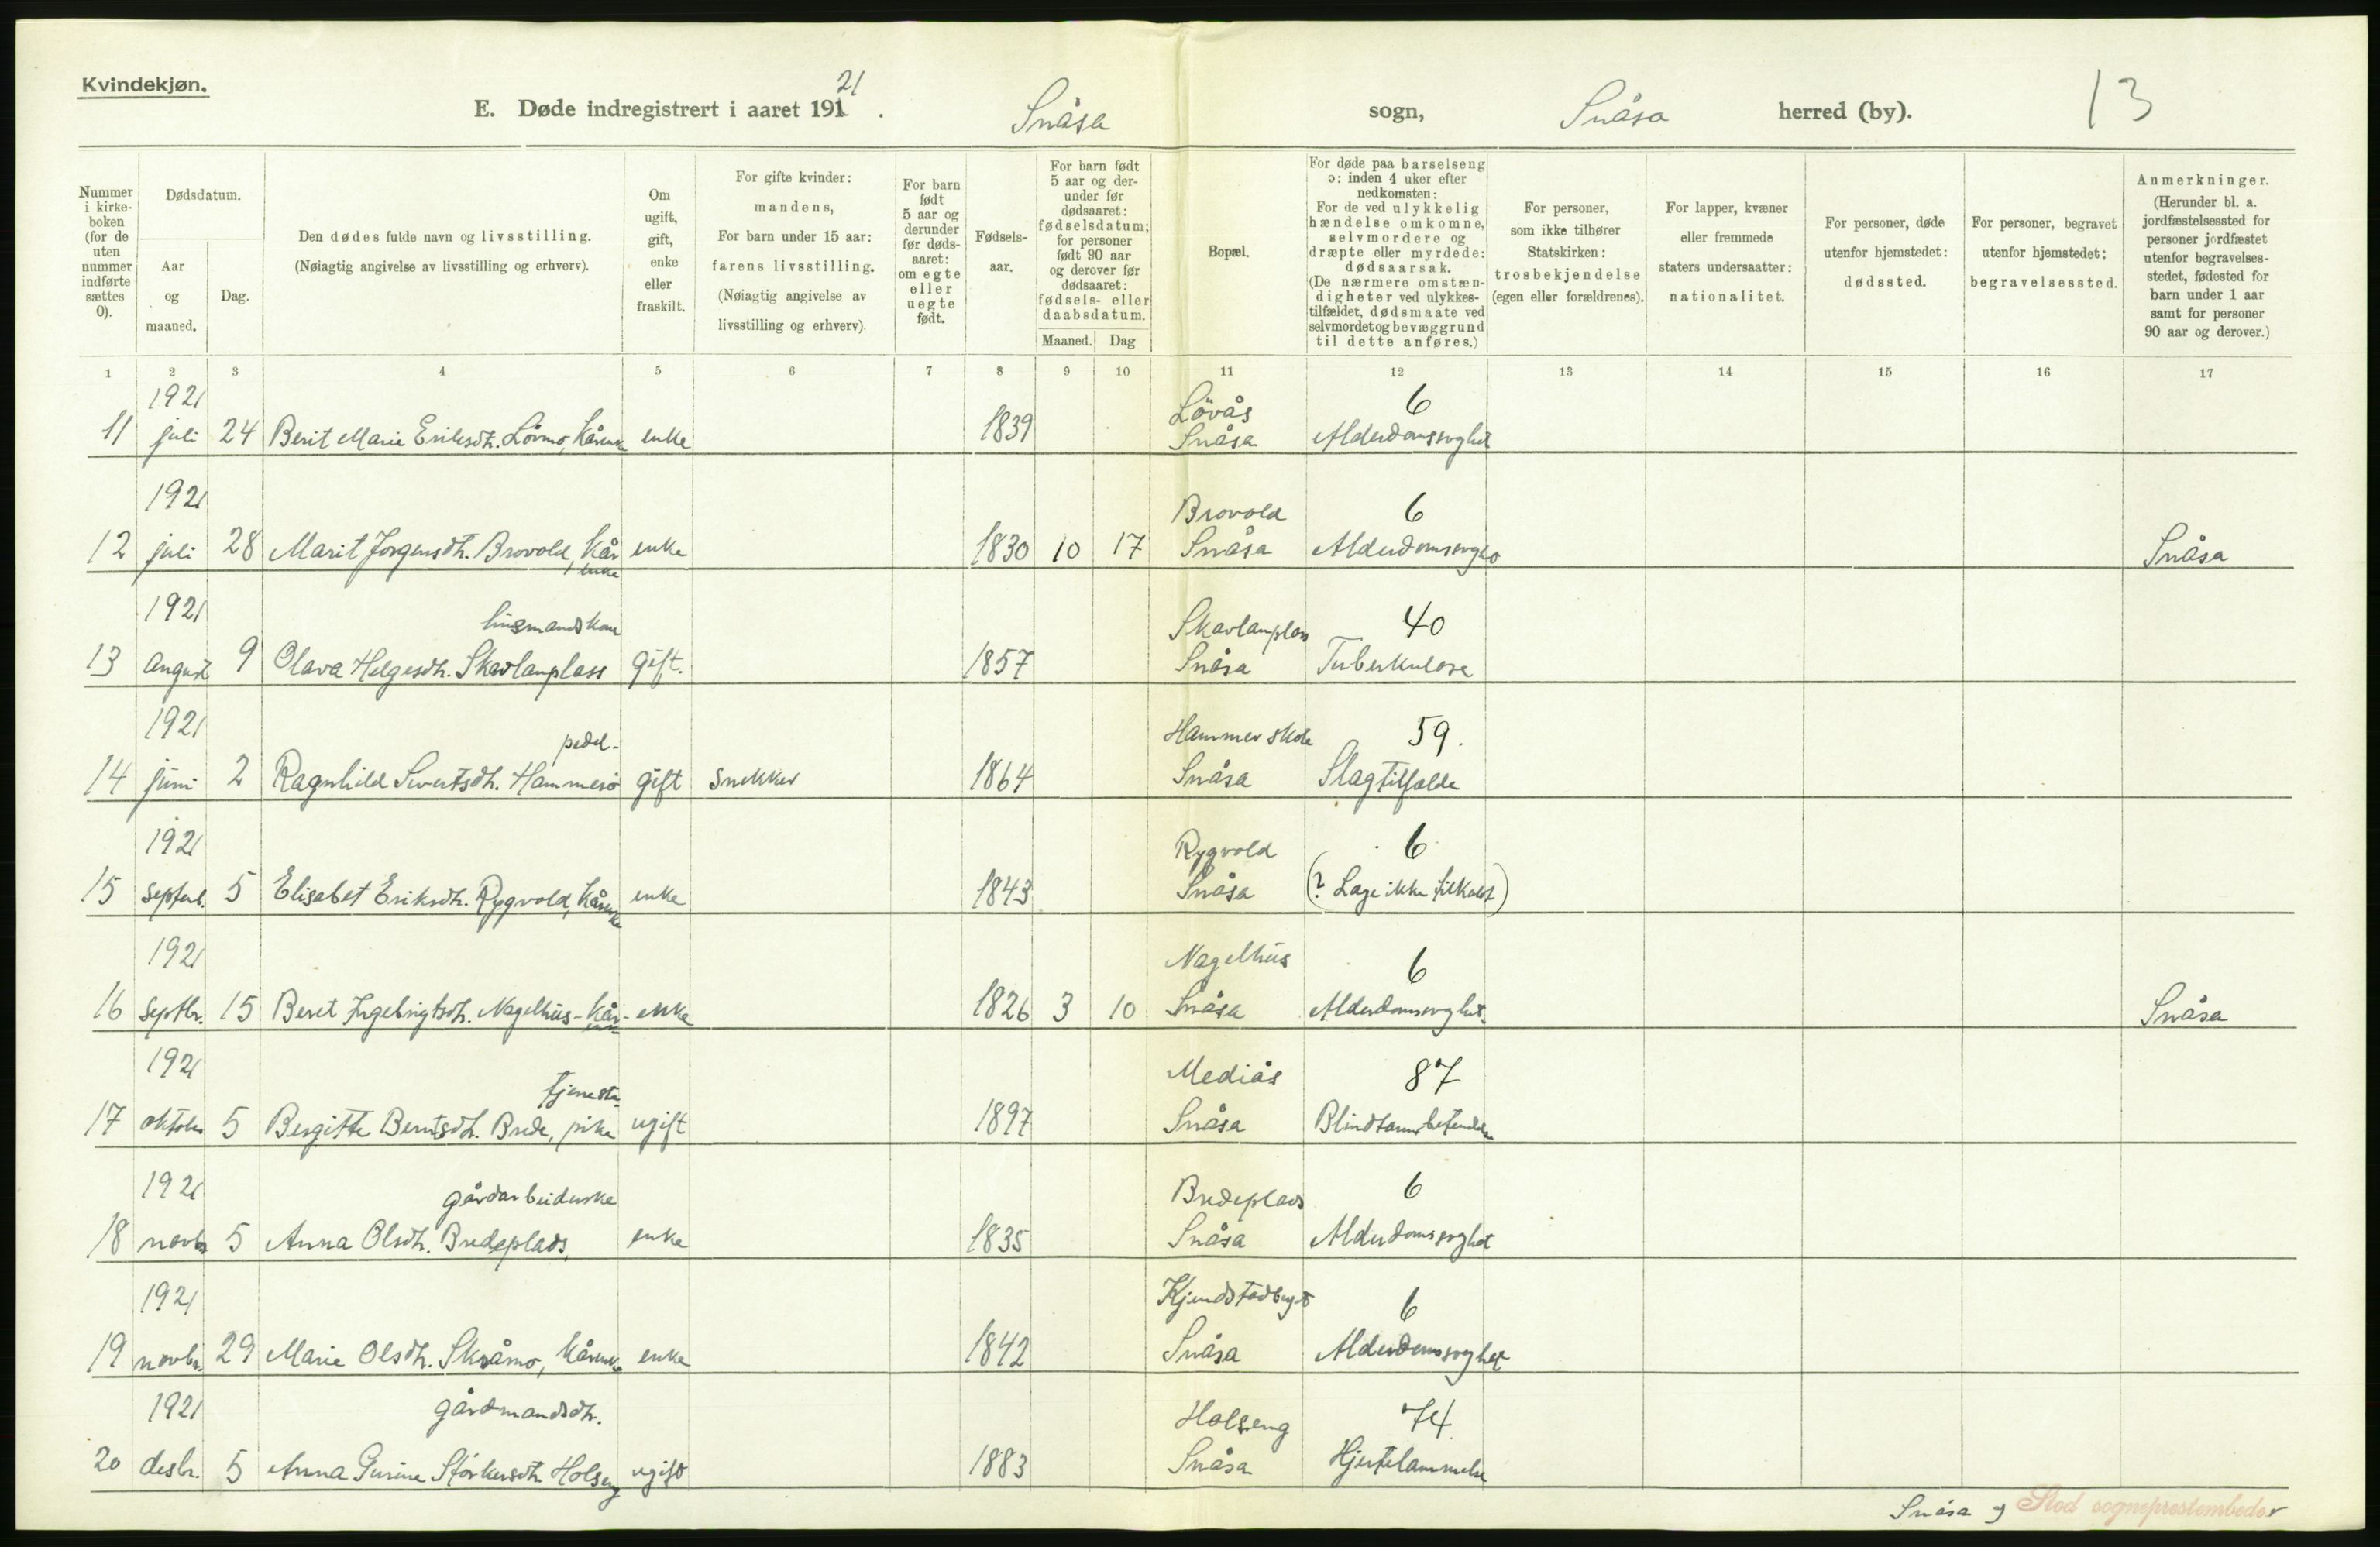 Kvindekjøn.
E. Døde indregistrert i aaret 191 21 . Snåsa sogn, Snåsa herred (by). 13
Nummer i kirkeboken (for de uten nummer indførte sættes 0).
Dødsdatum.
Aar og maaned.
Dag.
Den dødes fulde navn og livsstilling.
(Nøiagtig angivelse av livsstilling og erhverv).
Om ugift, gift, enke eller fraskilt.
For gifte kvinder: mandens,
For barn under 15 aar: farens livsstilling.
(Nøiagtig angivelse av livsstilling og erhverv)
For barn født 5 aar og derunder før dødsaaret: om egte eller uegte født.
Fødselsaar.
For barn født 5 aar og derunder før dødsaaret: fødselsdatum; for personer født 90 aar og derover før dødsaaret: fødsels- eller daabsdatum.
Maaned. Dag
Bopæl.
For døde paa barselseng ɔ: inden 4 uker efter nedkomsten:
For de ved ulykkelig hændelse omkomne, selvmordere og dræpte eller myrdede: dødsaarsak.
(De nærmere omstændigheter ved ulykkestilfældet, dødsmaate ved selvmordet og bevæggrund til dette anføres.)
For personer, som ikke tilhører Statskirken: trosbekjendelse (egen eller forældrenes).
For lapper, kvæner eller fremmede staters undersaatter: nationalitet.
For personer, døde utenfor hjemstedet: dødssted.
For personer, begravet utenfor hjemstedet: begravelsessted.
Anmerkninger.
(Herunder bl. a. jordfæstelsessted for personer jordfæstet utenfor begravelsesstedet, fødested for barn under 1 aar samt for personer 90 aar og derover.)
1 2 3 4 5 6 7 8 9 10 11 12 13 14 15 16 17
1921 Lövås 6
11 juli 24 Berit Marie Eriksdtr. Lövmo, kårenke enke 1839 Snåsa Alderdomssvaghet
1921 Brovold 6
12 juli 28 Marit Jorgensdtr. Brovold, kår enke 1830 10 17 Snåsa Snåsa
enke
1921 husmandskone Skavlanplass 40
13 august 9 Olava Helgesdtr. Skavlanplass gift. 1857 Snåsa Tuberkulose
1921 pedel- Hammer skole 59.
14 juni 2 Ragnhild Sivertsdtr. Hammer gift snekker 1864 Snåsa Slagtilfælde
1921 Rygvold 6
15 septemb. 5 Elisabet Eriksdtr. Rygvold, kårenke enke 1843 Snåsa (? Læge ikke tilkaldt)
1921 Nagelhus 6
16 septbr. 15 Beret Ingebrigtsdtr. Nagelhus - kår- enke 1826 3 10 Snåsa Alderdomssvaghet. Snåsa
1921 tjeneste- Mediås 87
17 oktober 5 Bergitte Berntsdtr. Brede, pike ugift 1897 Snåsa Blindtarmbetændelse
1921 gårdarbeiderske Bredeplads 6
18 novbr 5 Anna Olsdtr. Bredeplads, enke 1835 Snåsa Alderdomssvaghet
1921 6
19 novbr. 29 Marie Olsdtr. Skråmo, kårenke enke 1842 Snåsa Alderdomssvaghet
1921 gårdmandsdtr. Holseng 74
20 desbr. 5 Anna Gurine Størkersdtr Holseng ugift 1883 Snåsa Hjertelammelse
Snåsa og Stod sogneprestembeder